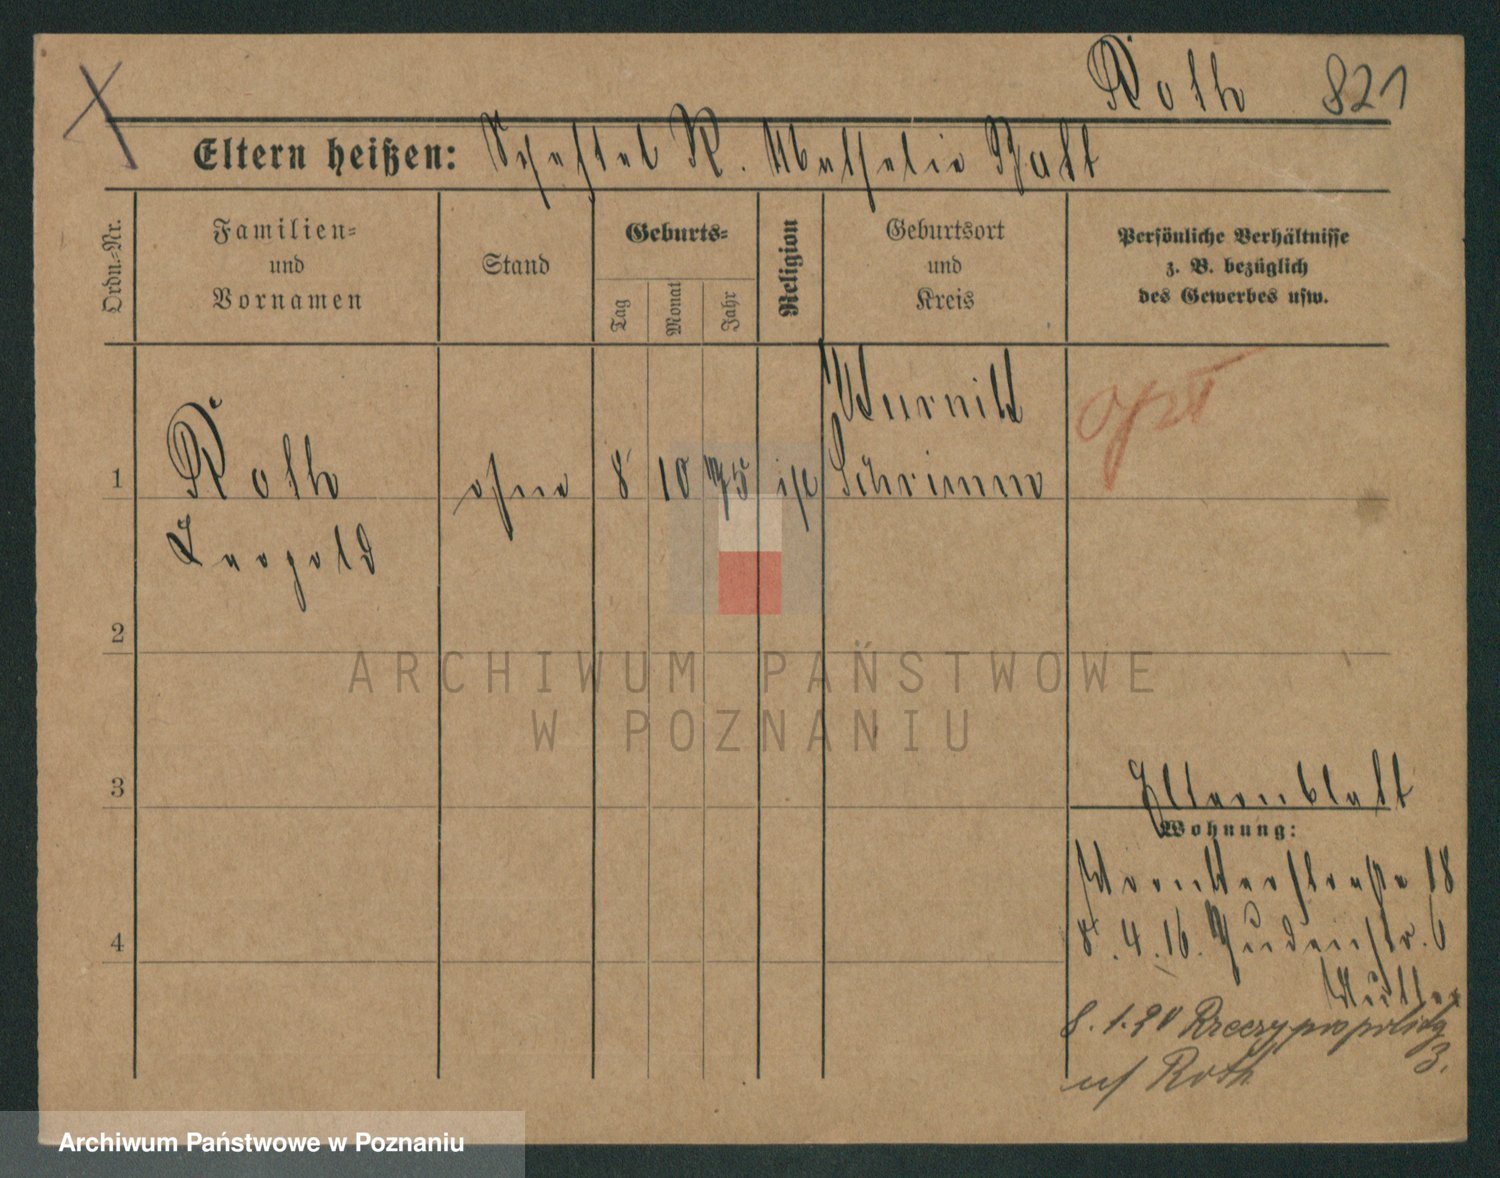 Roth 821
Eltern heißen: Scheftel R. Mathelie Blatt
Ordn.-Nr.
Familien-
und
Vornamen
Stand
Geburts-
Tag
Monat
Jahr
Religion
Geburtsort
und
Kreis
Persönliche Verhältnisse
z. B. bezüglich
des Gewerbes usw.
1
Roth
Leopold
ohne
8
10
75
Schrimm
opt
2
ARCHIWUM PAŃSTWOWE
W POZNANIU
3
Elternblatt
Wohnung:
18
8.4.16. Judenstr. 6
4
Mutter
8.1.20 Rzeczypospolitej
3.
Roth
Archiwum Państwowe w Poznaniu